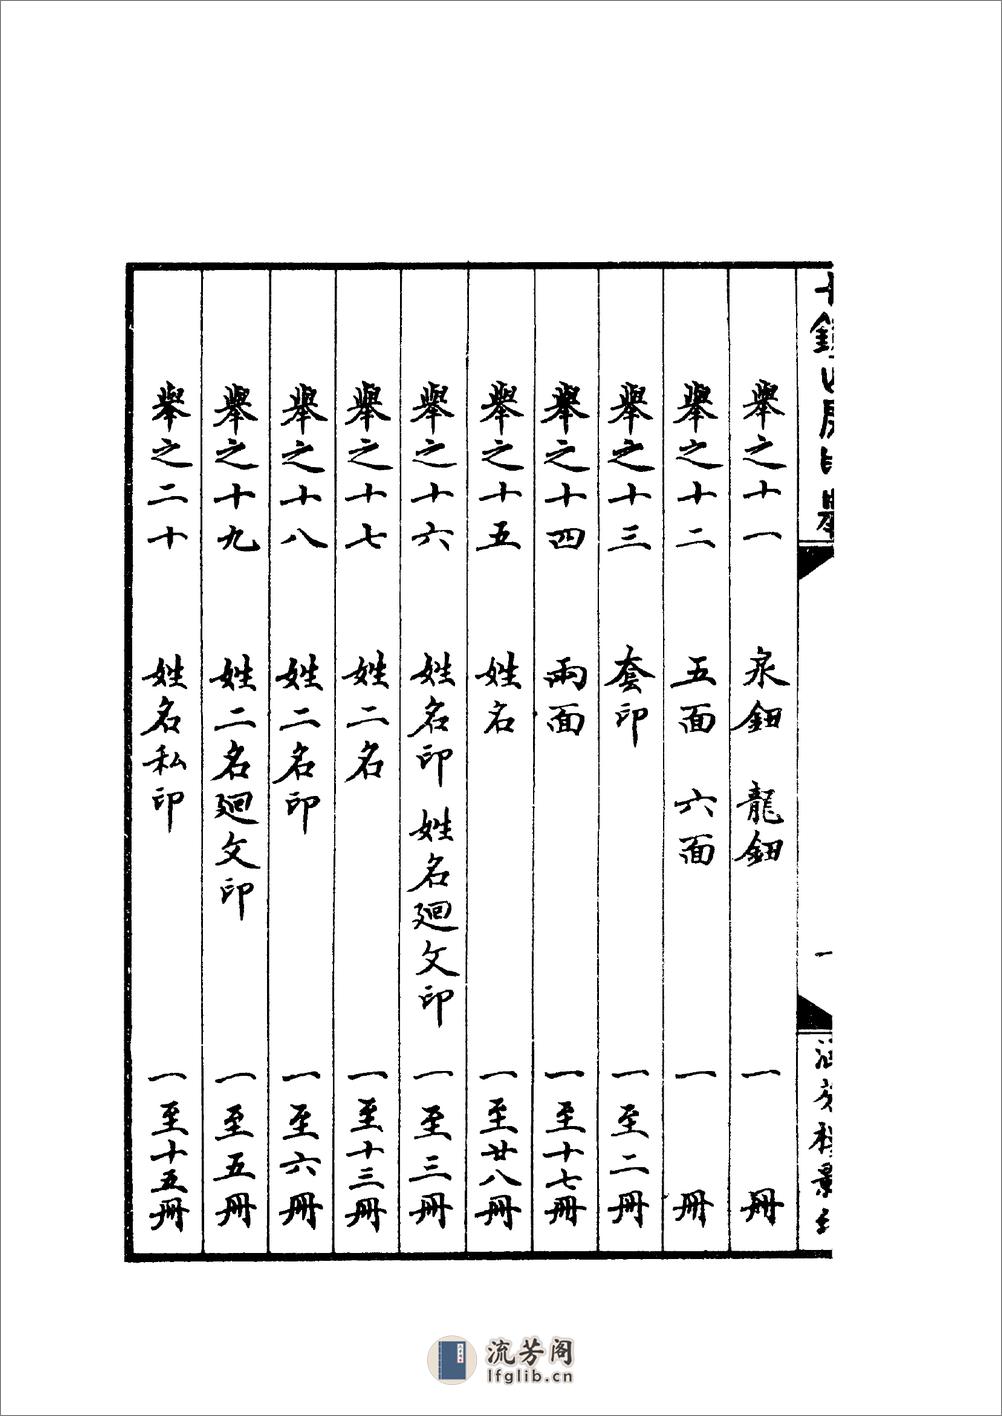 十鐘山房印舉
一
涵芬樓景印
舉之十一　永鈕　龍鈕　一冊
舉之十二　五面　六面　一冊
舉之十三　套印　一至二冊
舉之十四　兩面　一至十七冊
舉之十五　姓名　一至廿八冊
舉之十六　姓名印　姓名廻文印　一至三冊
舉之十七　姓二名　一至十三冊
舉之十八　姓二名印　一至六冊
舉之十九　姓二名廻文印　一至五冊
舉之二十　姓名私印　一至十五冊
流芳阁
lfglib.cn